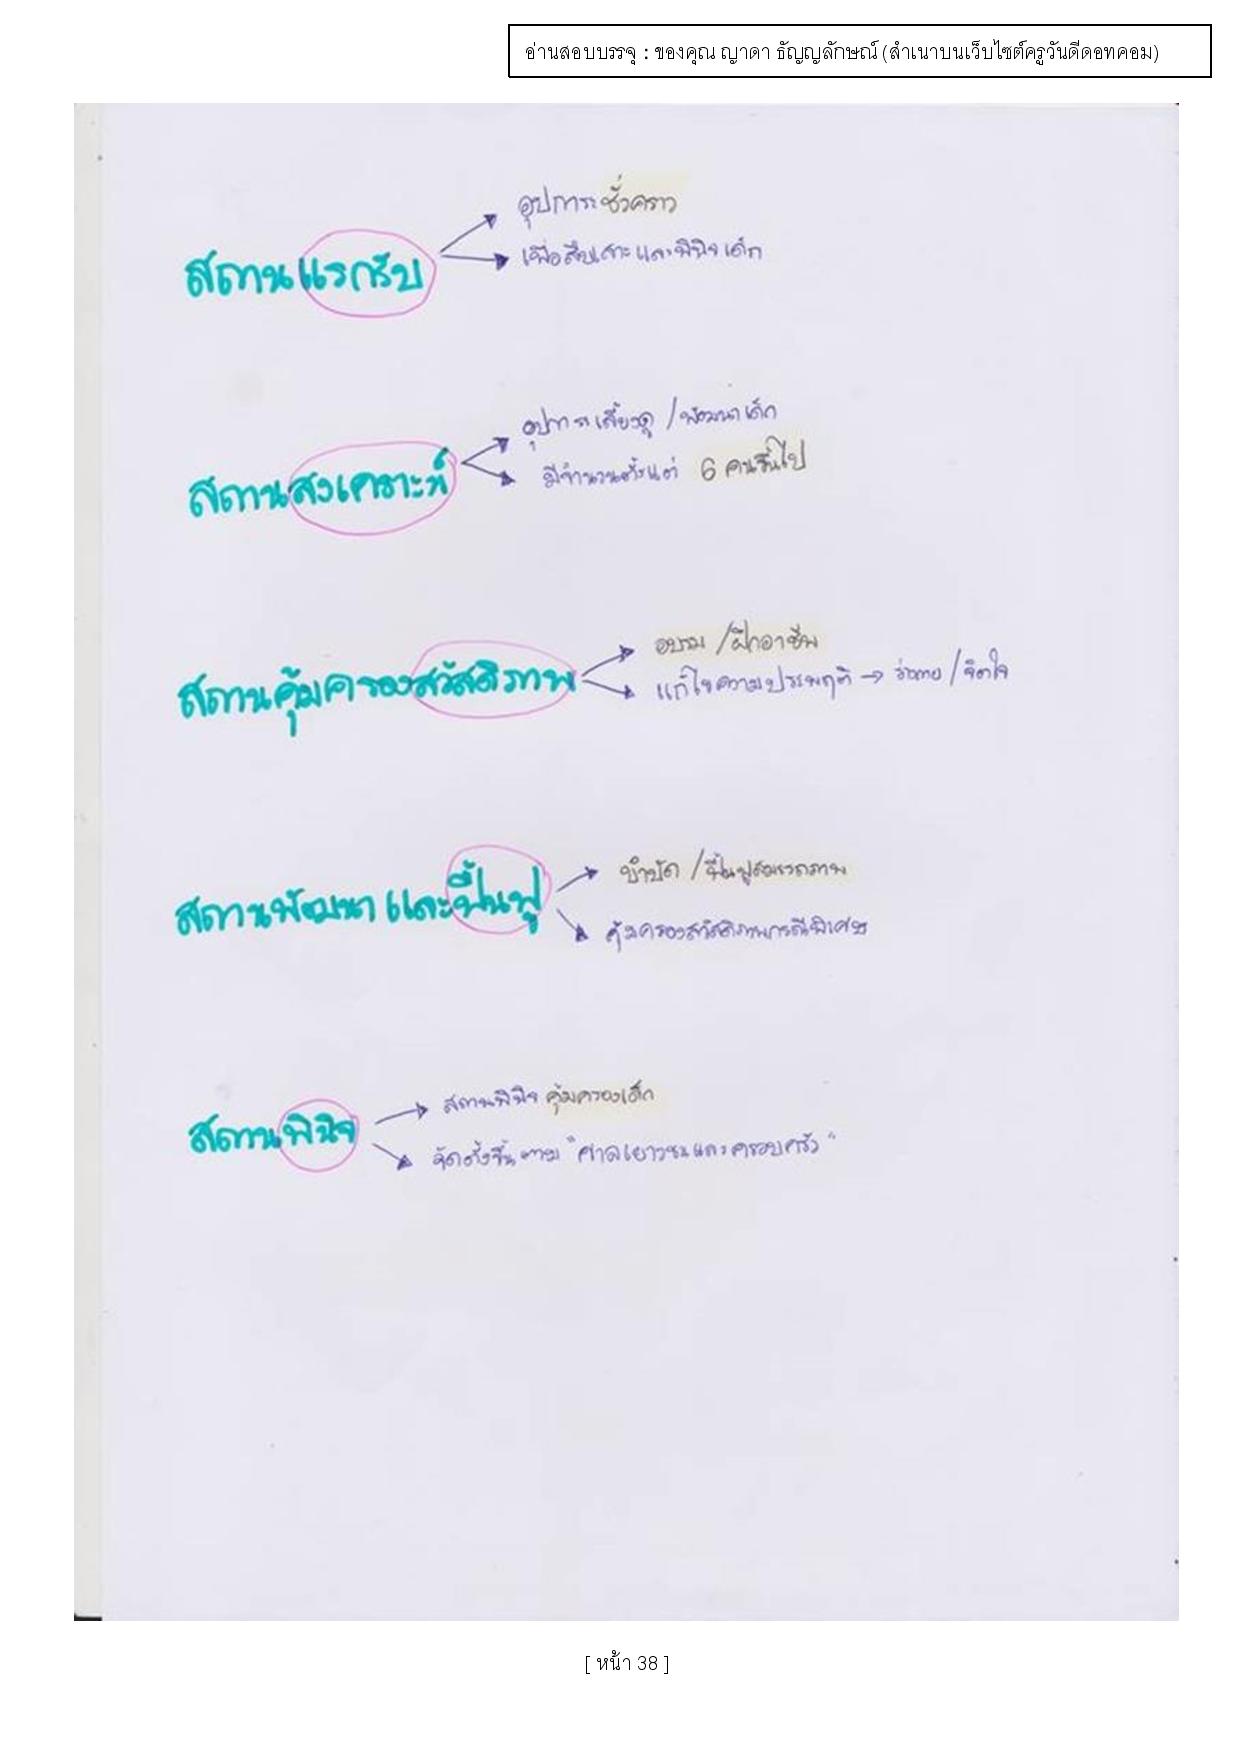 อ่านสอบบรรจุ : ของคุณ ญาดา ธัญญลักษณ์ (สำเนาบนเว็บไซต์ครูวันดีดอทคอม)
อุปการะชั่วคราว
สถานแรกรับ
เพื่อสืบเสาะและพินิจเด็ก
อุปการะเลี้ยงดู / พัฒนาเด็ก
สถานสงเคราะห์
มีจำนวนตั้งแต่ 6 คนขึ้นไป
อบรม / ฝึกอาชีพ
สถานคุ้มครองสวัสดิภาพ
แก้ไขความประพฤติ → ร่างกาย / จิตใจ
บำบัด / ฟื้นฟูสมรรถภาพ
สถานพัฒนาและฟื้นฟู
คุ้มครองสวัสดิภาพกรณีพิเศษ
สถานพินิจคุ้มครองเด็ก
สถานพินิจ
จัดตั้งขึ้นตาม "ศาลเยาวชนและครอบครัว"
[ หน้า 38 ]